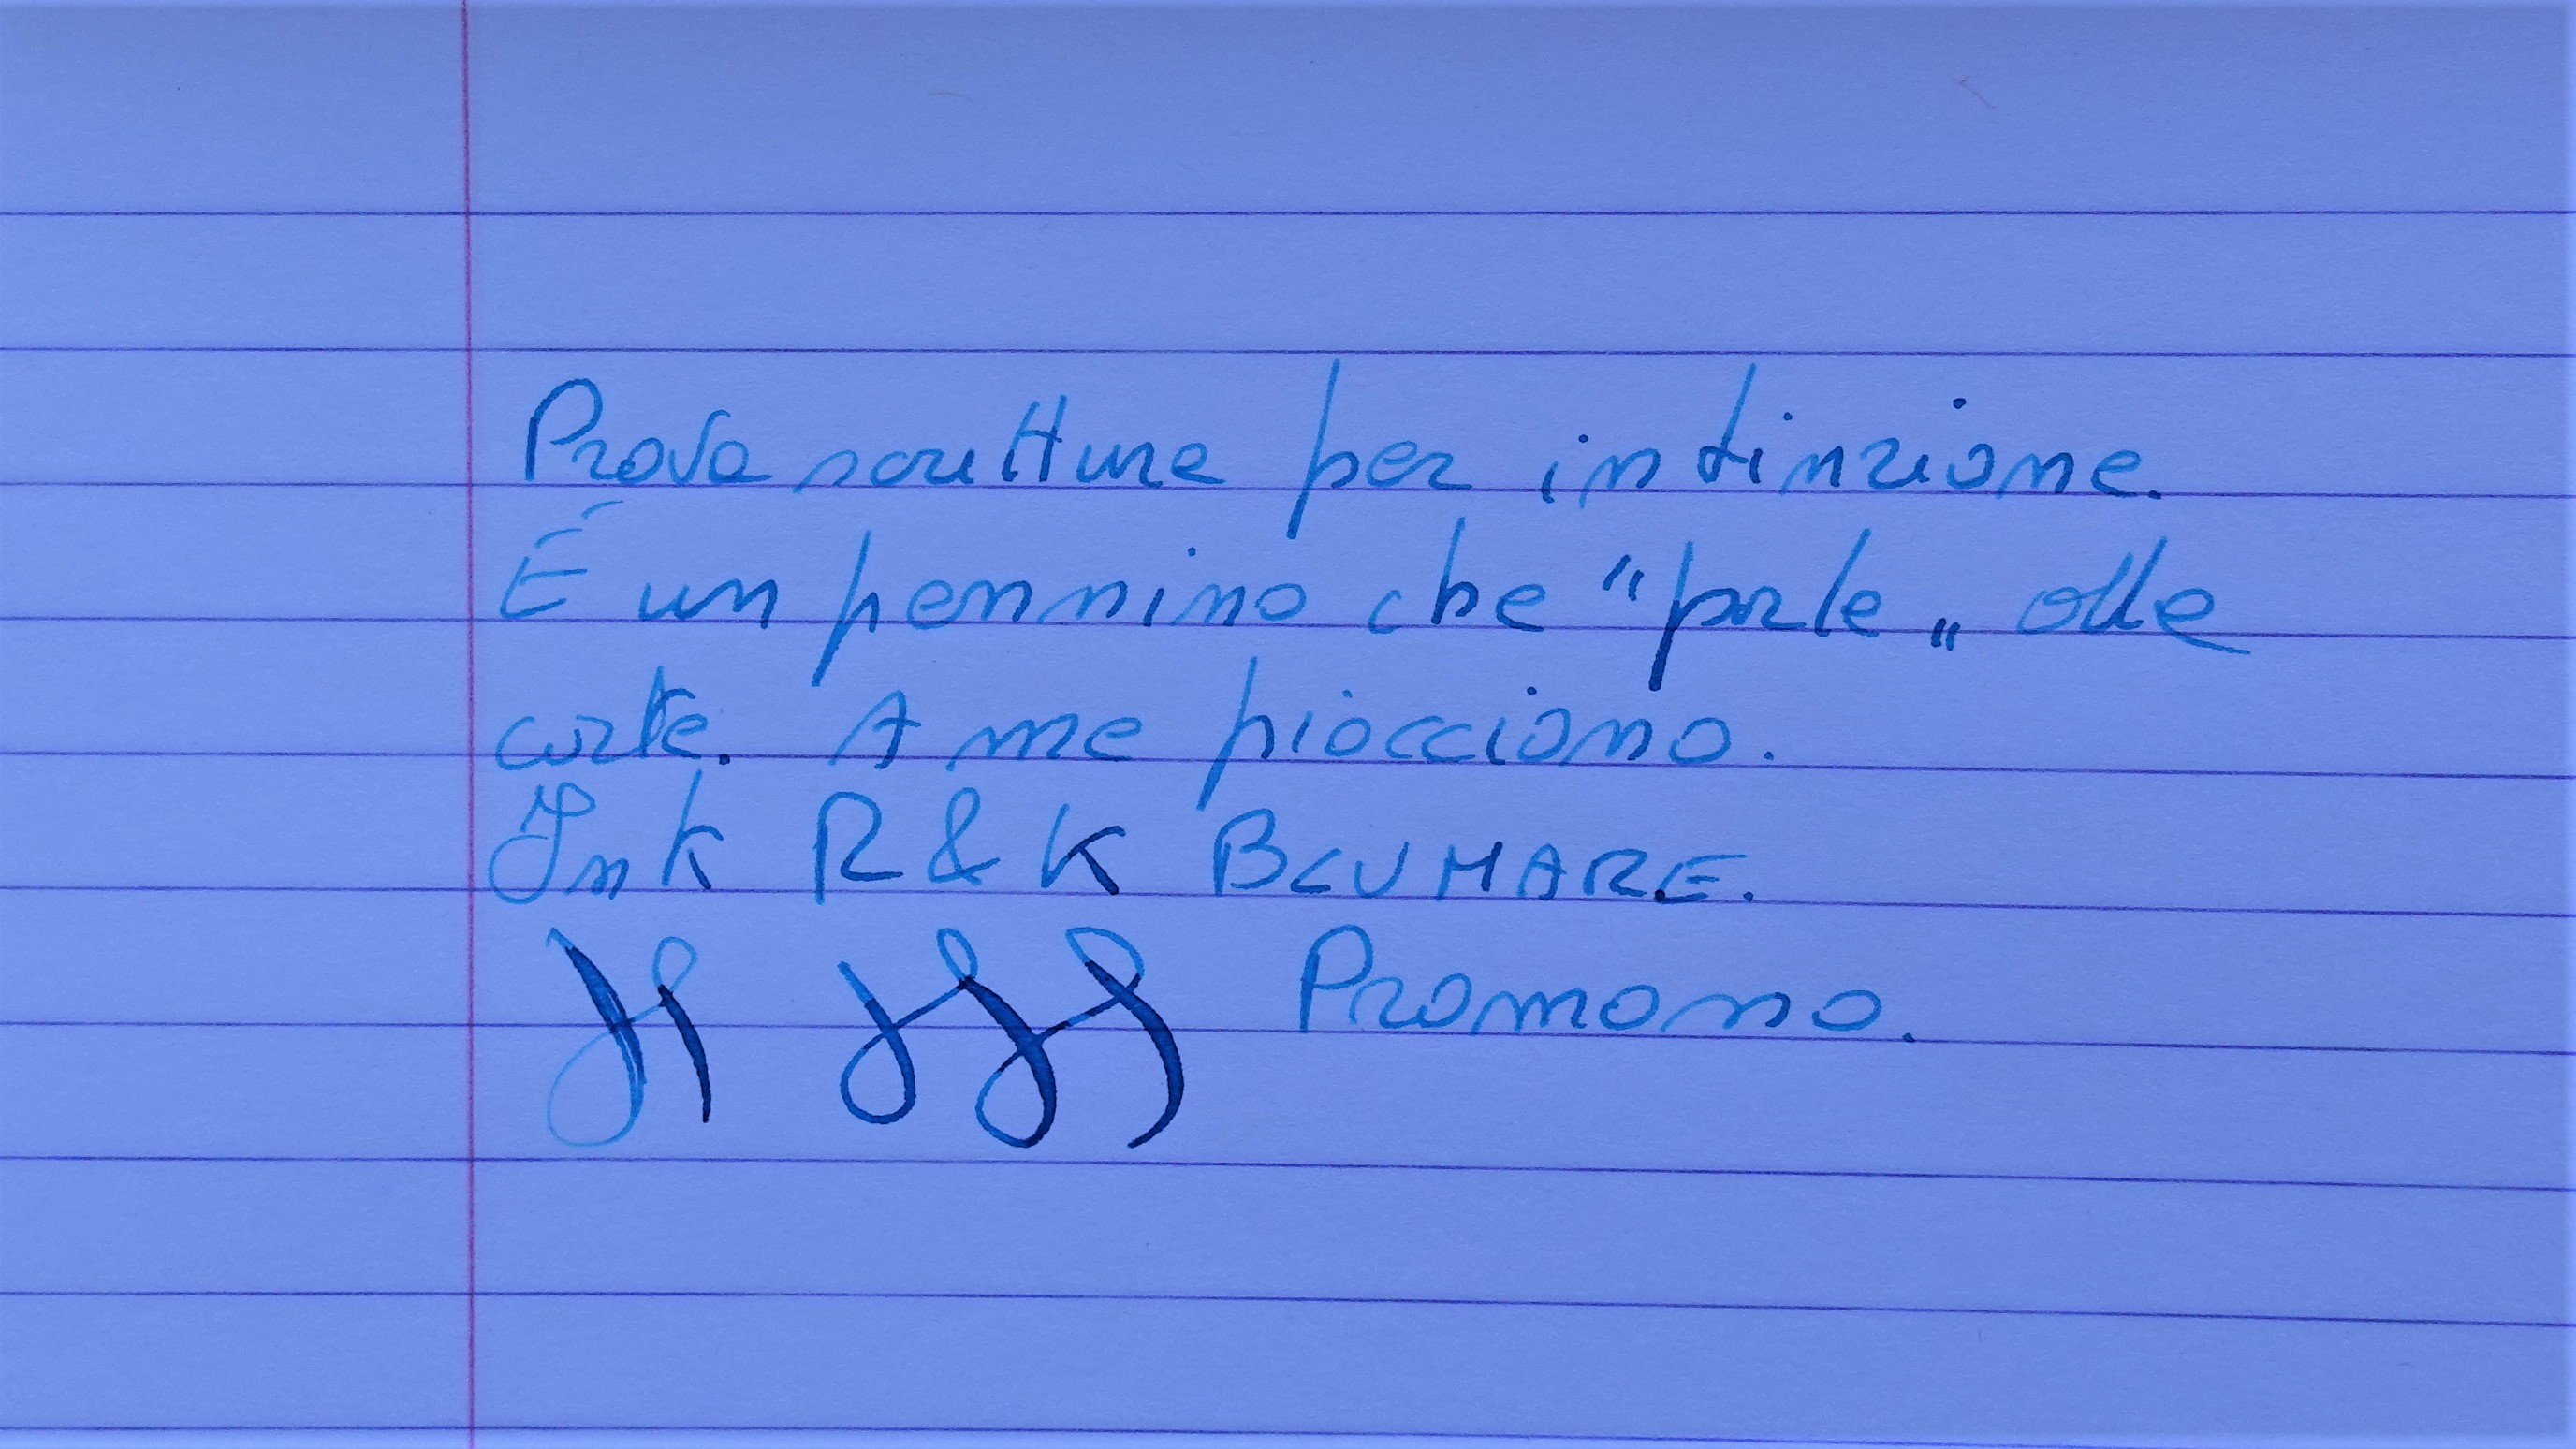 Prova scrittura per intinzione.
É un pennino che "parla" alla
carta. A me piacciono.
Ink R & K BLUMARE.
Promomo.